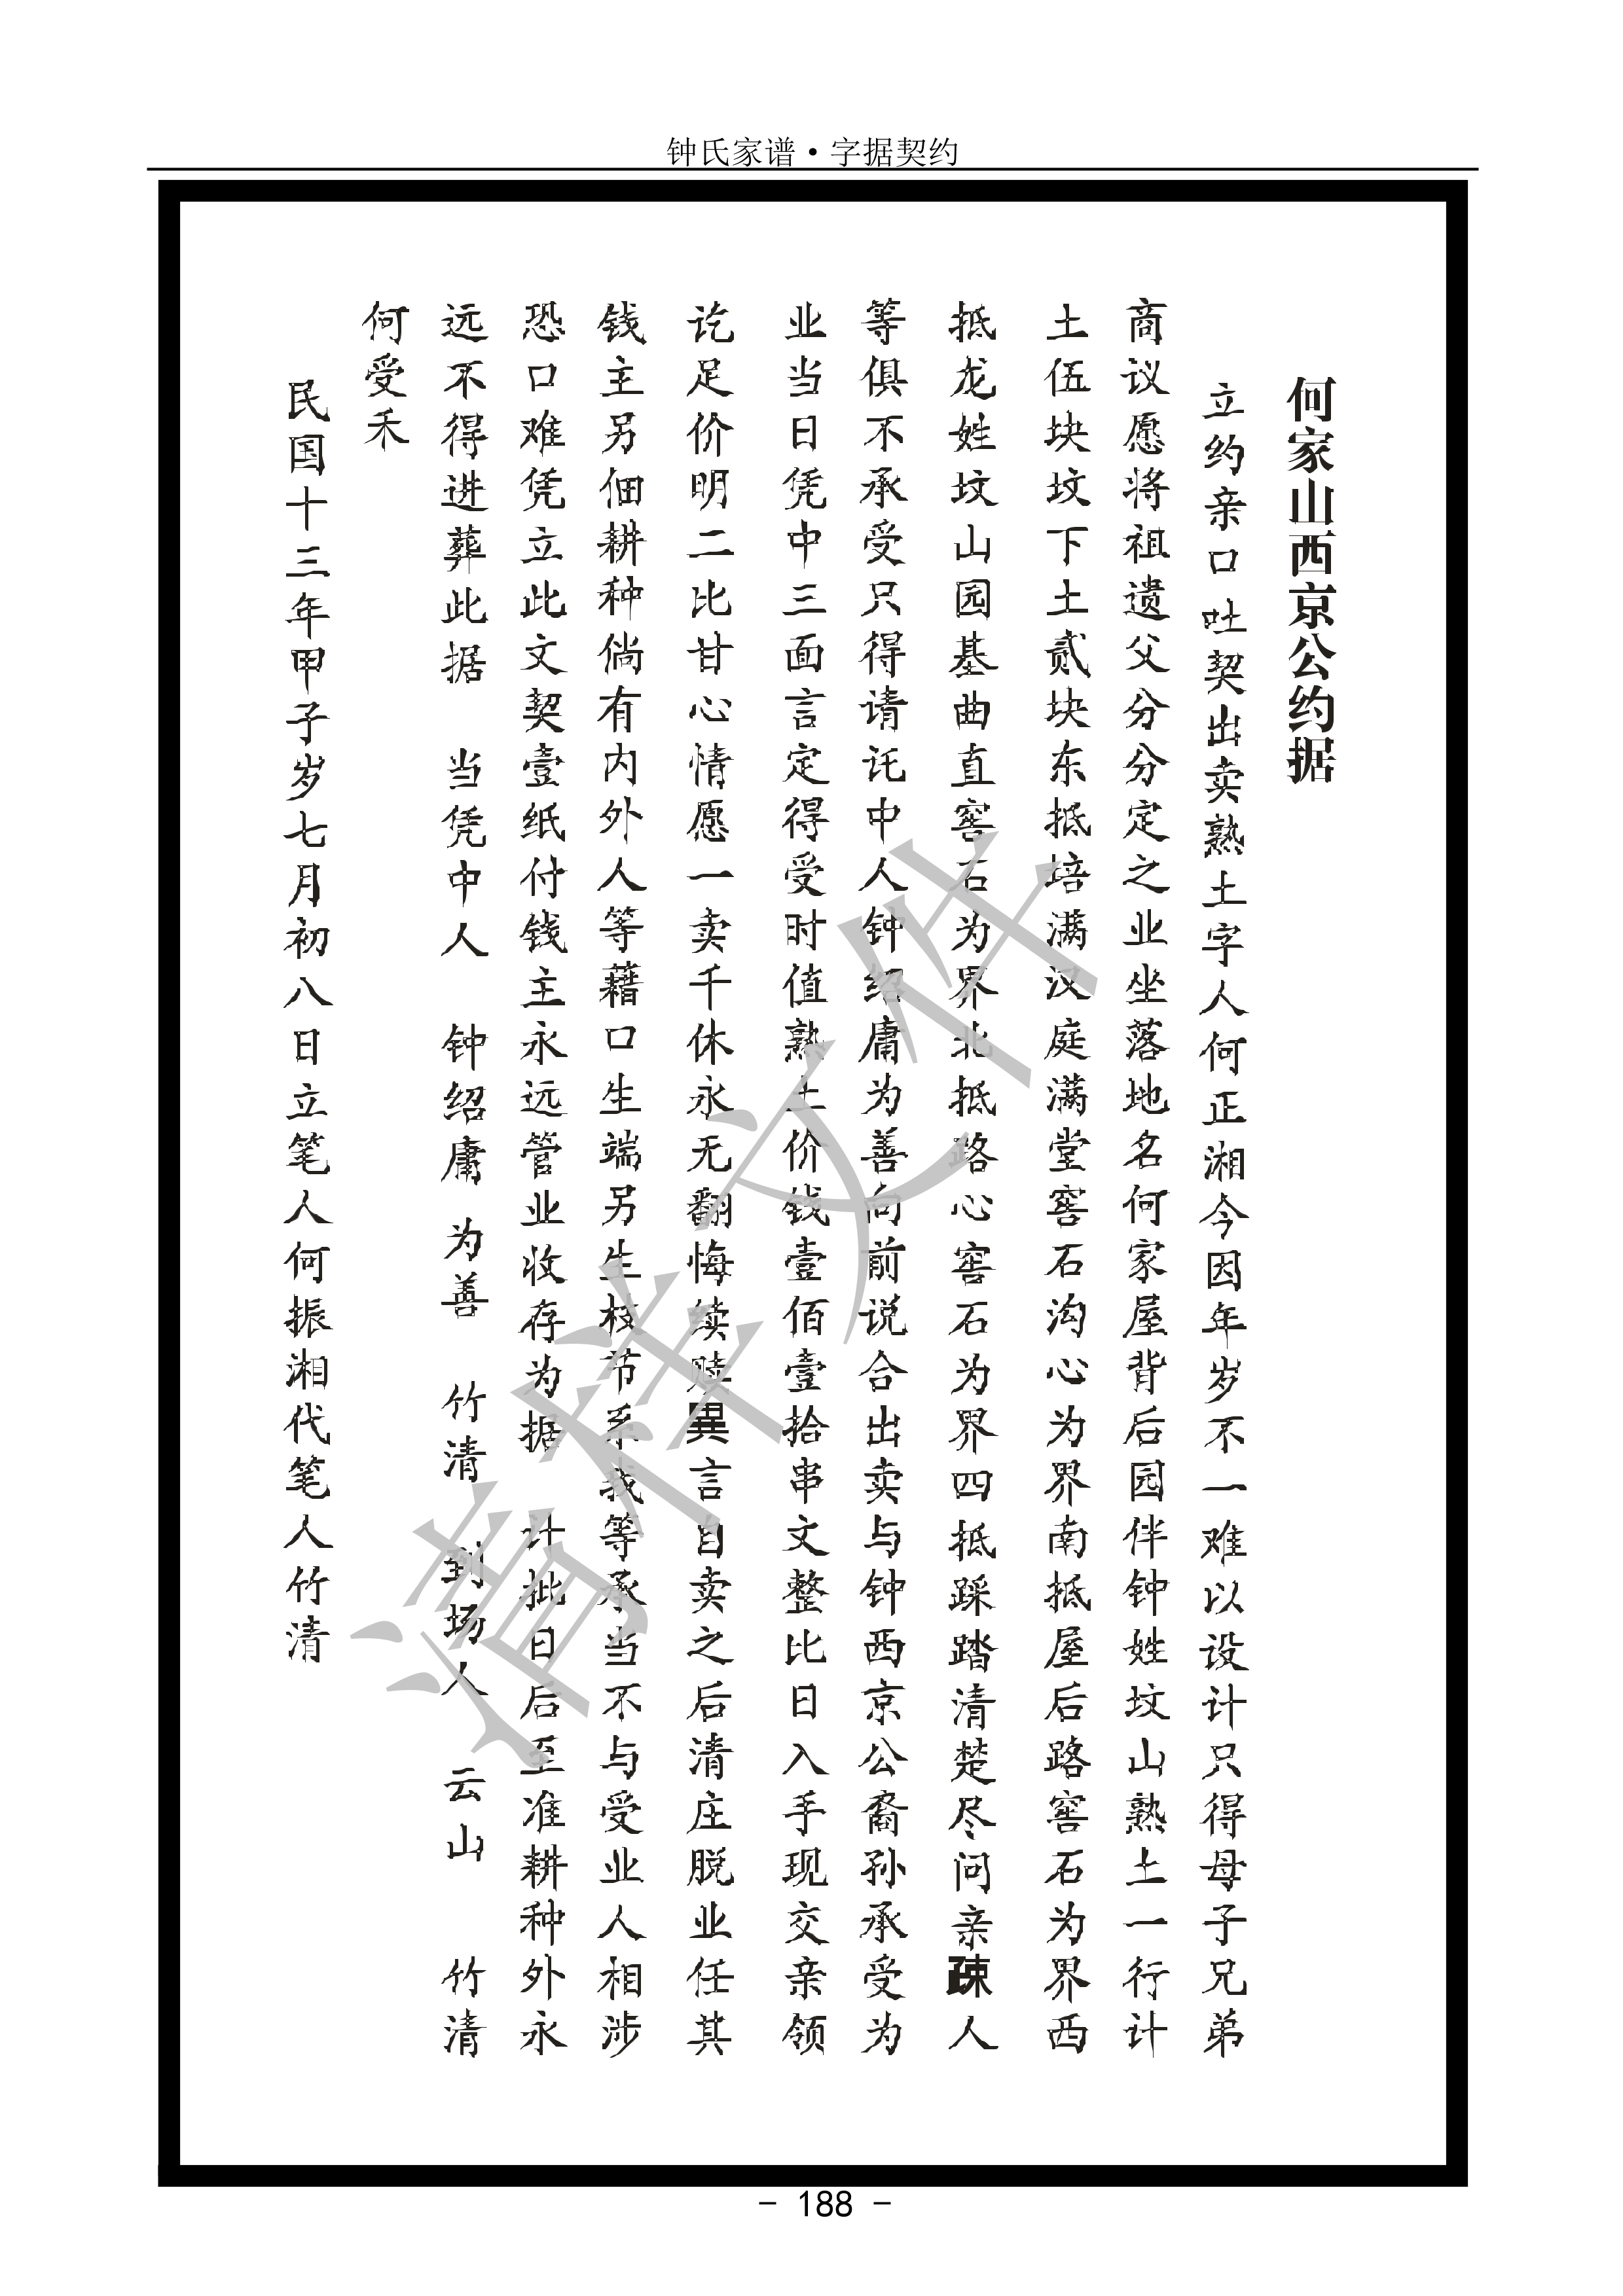 钟氏家谱·字据契约
何家山西京公约据
立约亲口吐契出卖熟土字人何正湘今因年岁不一难以设计只得母子兄弟
商议愿将祖遗父分分定之业坐落地名何家屋背后园伴钟姓坟山熟土一行计
土伍块坟下土贰块东抵培满汉庭满堂窖石沟心为界南抵屋后路窖石为界西
抵龙姓坟山园基曲直窖石为界北抵路心窖石为界四抵踩踏清楚尽问亲疎人
等俱不承受只得请讬中人钟绍庸为善向前说合出卖与钟西京公裔孙承受为
业当日凭中三面言定得受时值熟土价钱壹佰壹拾串文整比日入手现交亲领
讫足价明二比甘心情愿一卖千休永无翻悔续赎異言自卖之后清庄脱业任其
钱主另佃耕种倘有内外人等藉口生端另生枝节系我等承当不与受业人相涉
恐口难凭立此文契壹纸付钱主永远管业收存为据 计批日后至准耕种外永
远不得进葬此据 当凭中人 钟绍庸 为善 竹清 到场人 云山 竹清
何受禾
民国十三年甲子岁七月初八日立笔人何振湘代笔人竹清
清样文件
- 188 -